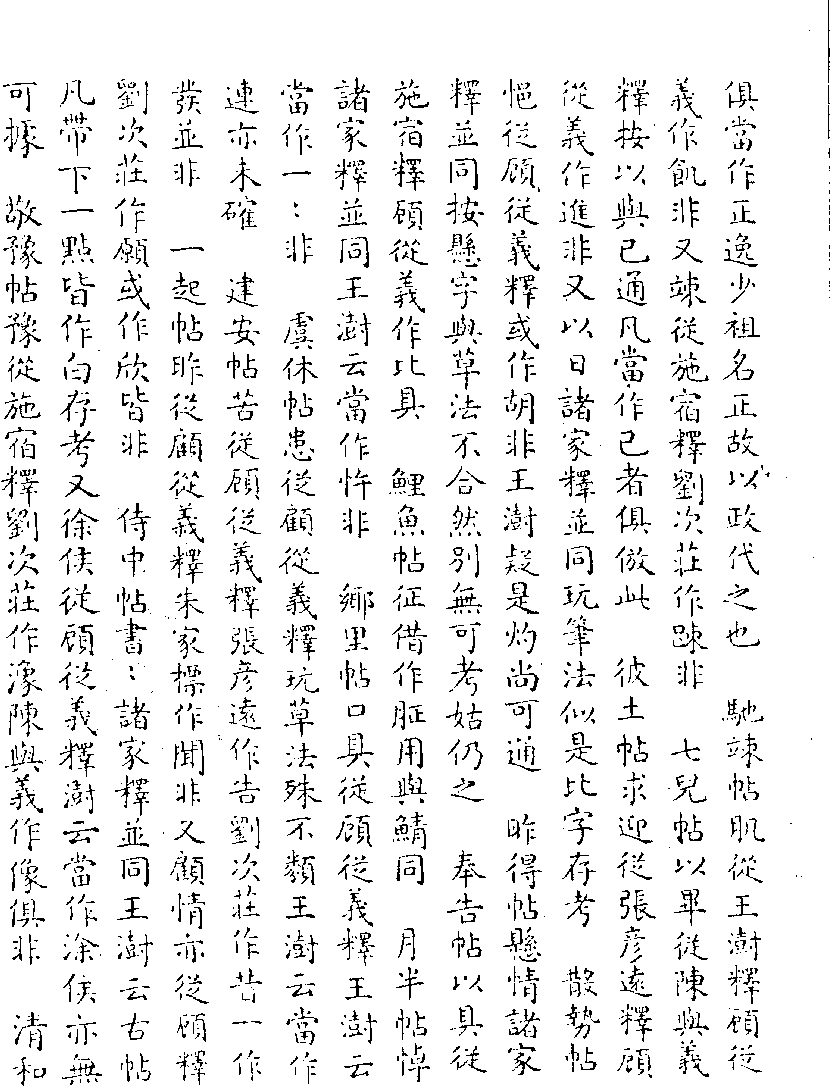 俱當作正逸少祖名正故以政代之也　馳竦帖肌從王澍釋顧從
義作飢非又竦從施宿釋劉次莊作踈非　七兒帖以畢從陳與義
釋按以與已通凡當作已者俱倣此　彼土帖求迎從張彦遠釋顧
從義作進非又以日諸家釋並同玩筆法似是比字存考　散勢帖
悒從顧從義釋或作胡非王澍疑是灼尚可通　昨得帖懸情諸家
釋並同按懸字與草法不合然别無可考姑仍之　奉告帖以具從
施宿釋顧從義作比具　鯉魚帖征借作䑸用與鯖同　月半帖悼
諸家釋並同王澍云當作忤非　鄉里帖口具從顧從義釋王澍云
當作一〻非　虞休帖患從顧從義釋玩草法殊不類王澍云當作
連亦未確　建安帖苦從顧從義釋張彦遠作告劉次莊作昔一作
發並非　一起帖昨從顧從義釋朱家標作聞非又顧情亦從顧釋
劉次莊作願或作欣皆非　侍中帖書〻諸家釋並同王澍云古帖
凡帶下一點皆作白存考又徐侯從顧從義釋澍云當作涂侯亦無
可據　敬豫帖豫從施宿釋劉次莊作濠陳與義作像俱非　清和